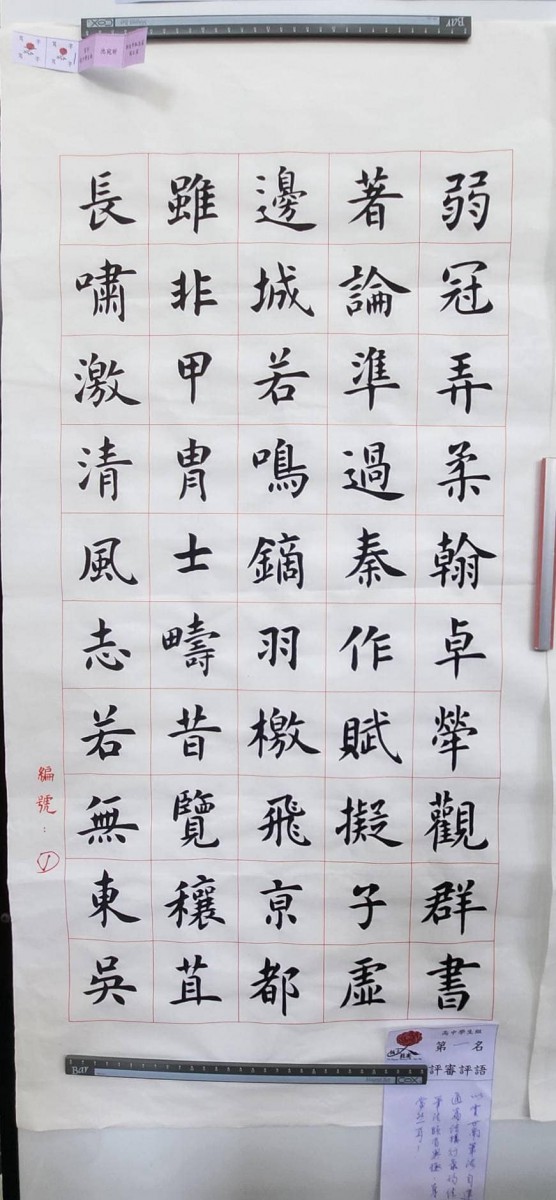 弱冠弄柔翰卓犖觀群書
著論準過秦作賦擬子虛
邊城若鳴鏑羽檄飛亰都
雖非甲冑士疇昔覽穰苴
長嘯激清風志若無東吳
編號：1
高中學生組
第一名
評審評語